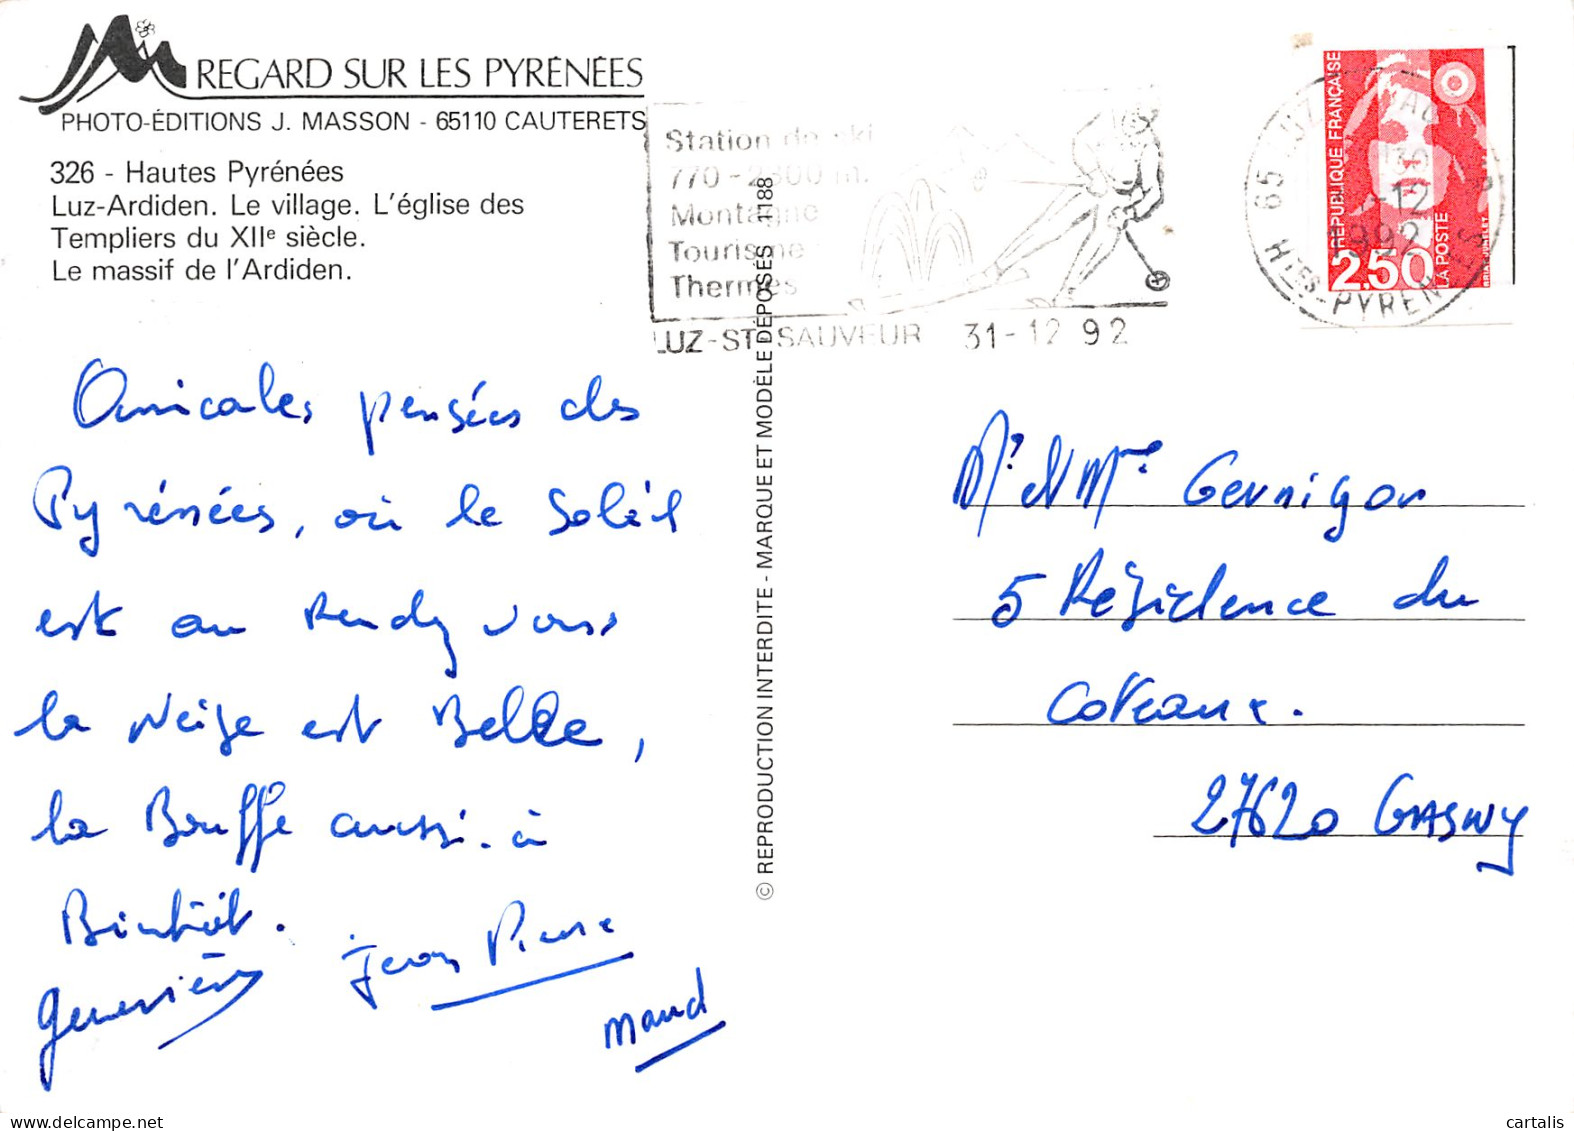 REGARD SUR LES PYRÉNÉES
PHOTO-ÉDITIONS J. MASSON - 65110 CAUTERETS
326 - Hautes Pyrénées
Luz-Ardiden. Le village. L'église des
Templiers du XIIe siècle.
Le massif de l'Ardiden.
Station de ski
770 - 2300 m.
Montagne
Tourisme
Thermes
LUZ-ST-SAUVEUR 31-12 92
RÉPUBLIQUE FRANÇAISE
2,50
LA POSTE
65 LUZ
31-12
1992
HTES-PYRENEES
Amicales pensées des
Pyrénées, où le Soleil
est au Rendez vous
la Neige est Belle,
la Bouffe aussi. à
Bientôt.
Geneviève
Jean Pierre
Maud
© REPRODUCTION INTERDITE - MARQUE ET MODÈLE DÉPOSÉS 1188
Mr et Mme Gernigon
5 Résidence du
Coteaux.
27620 GASNY
cartalis